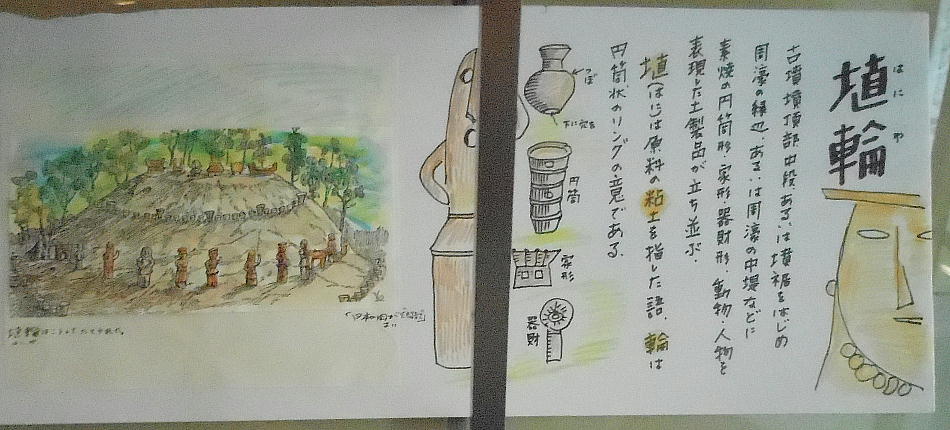 埴輪
はにわ
古墳墳頂部中段あるいは墳裾をはじめ
周濠の縁辺、あるいは周濠の中堤などに
素焼の円筒形・家形・器財形・動物・人物を
表現した土製品が立ち並ぶ。
埴(はに)は原料の粘土を指した語 輪は
円筒状のリングの意である。
つぼ
円筒
家形
器財